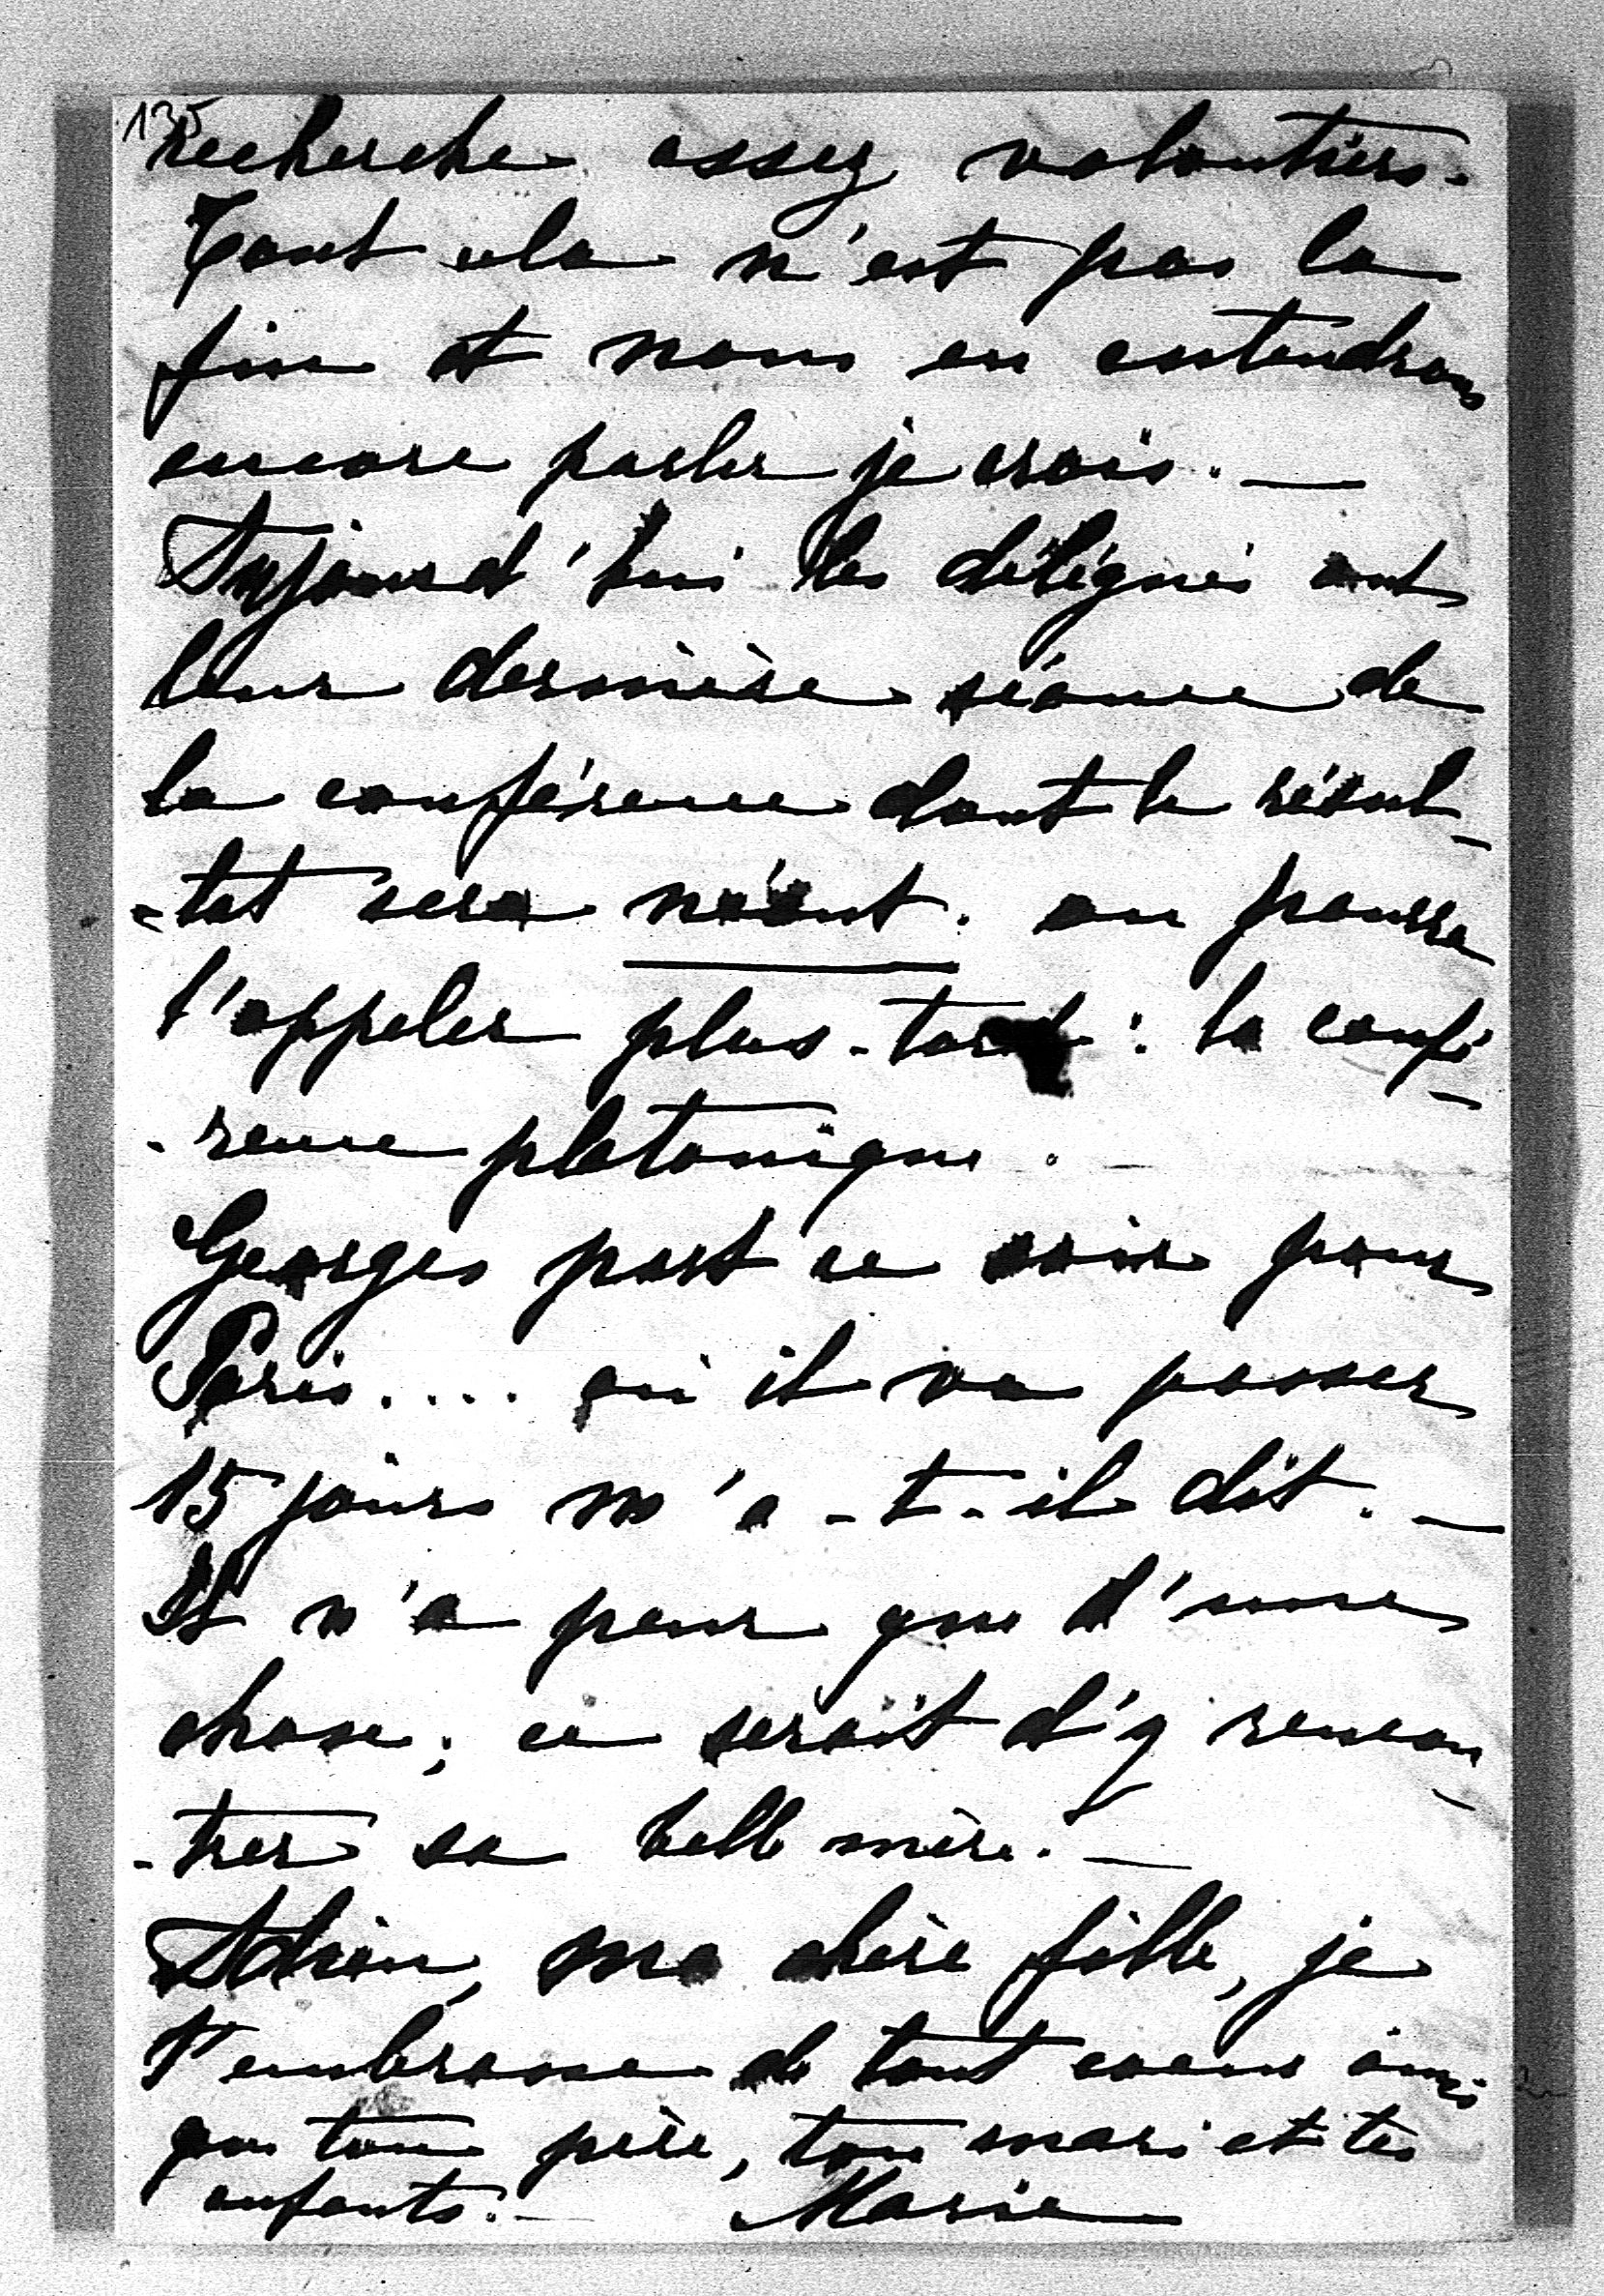 135
recherche assez volontiers.
Tout cela n'est pas la
fin et nous en entendrons
encore parler je crois. —
Aujourd'hui les délégués ont
leur dernière séance de
la conférence dont le résul-
-tat sera néant. on pourra
l'appeler plus-tard : la confé-
-rence platonique. —
Georges part ce soir pour
Paris.... où il va passer
15 jours m'a-t-il dit. —
Il n'a peur que d'une
chose; ce serait d'y rencon-
-trer sa belle mère. —
Adieu, ma chère fille, je
t'embrasse de tout coeur ainsi
que ton père, ton mari et tes
enfants. — Marie